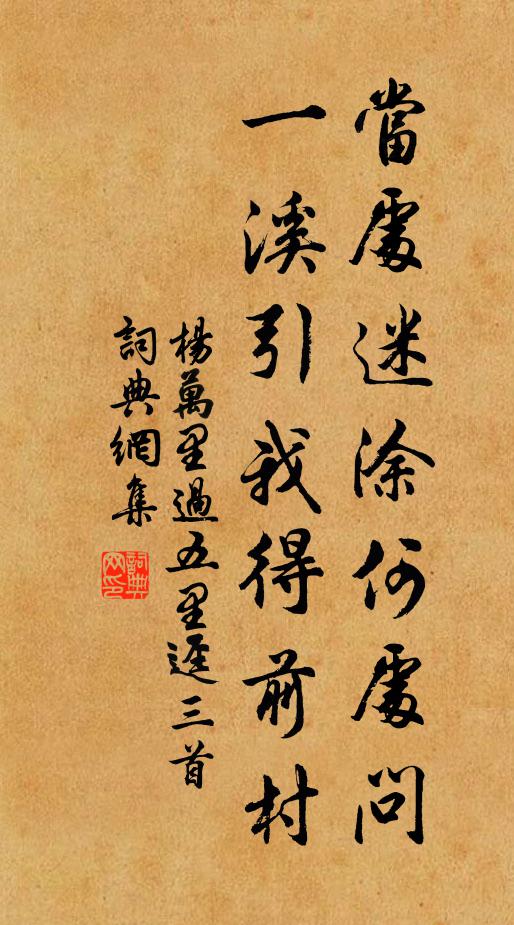 當處迷涂何處問
一溪引我得前村
楊萬里過五里逕三首
詞典網集
詞典网印